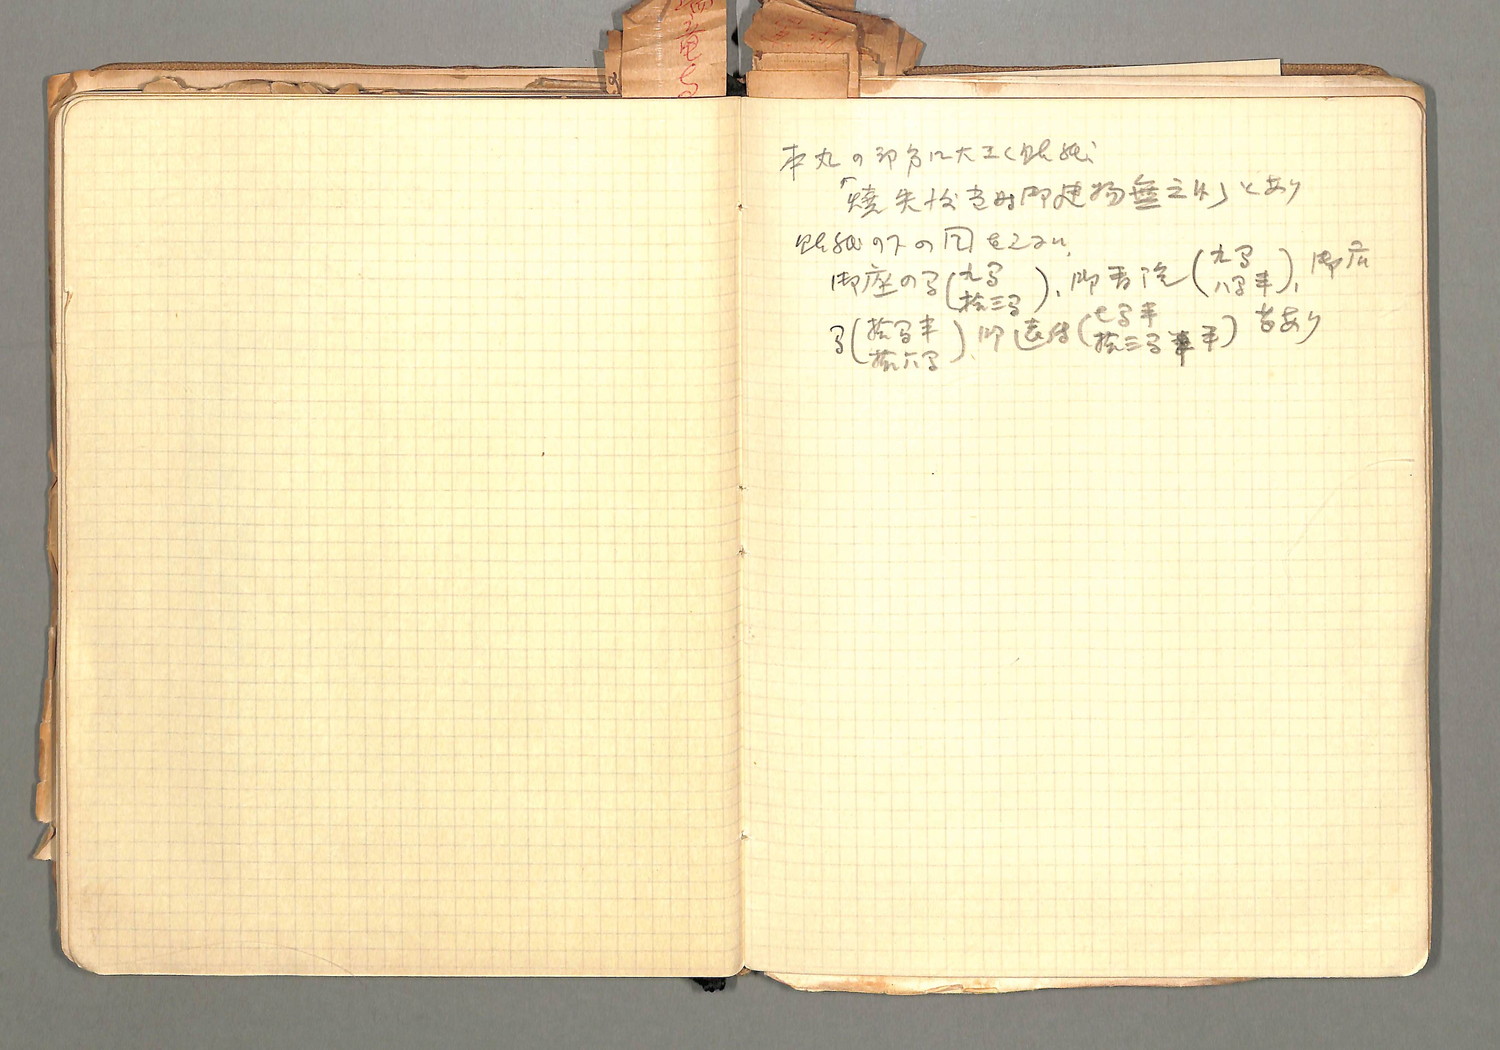 本丸の部分に大きく貼紙
「焼失後当時御建物無之所」とあり
貼紙の下の図をみるに、
御座の間(九間 拾三間)、御書院(九間 八間半)、御広
間(拾間半 拾六間)、御遠侍(七間半 拾三間半)等あり